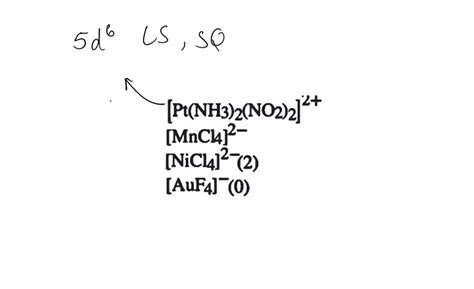 5d⁶ LS, SQ
[Pt(NH3)₂(NO2)₂]²⁺
[MnCl4]²⁻
[NiCl4]²⁻(2)
[AuF4]⁻(0)